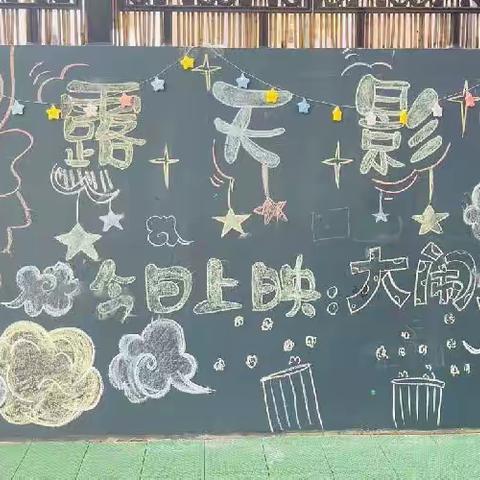 露天影
今日上映：大闹